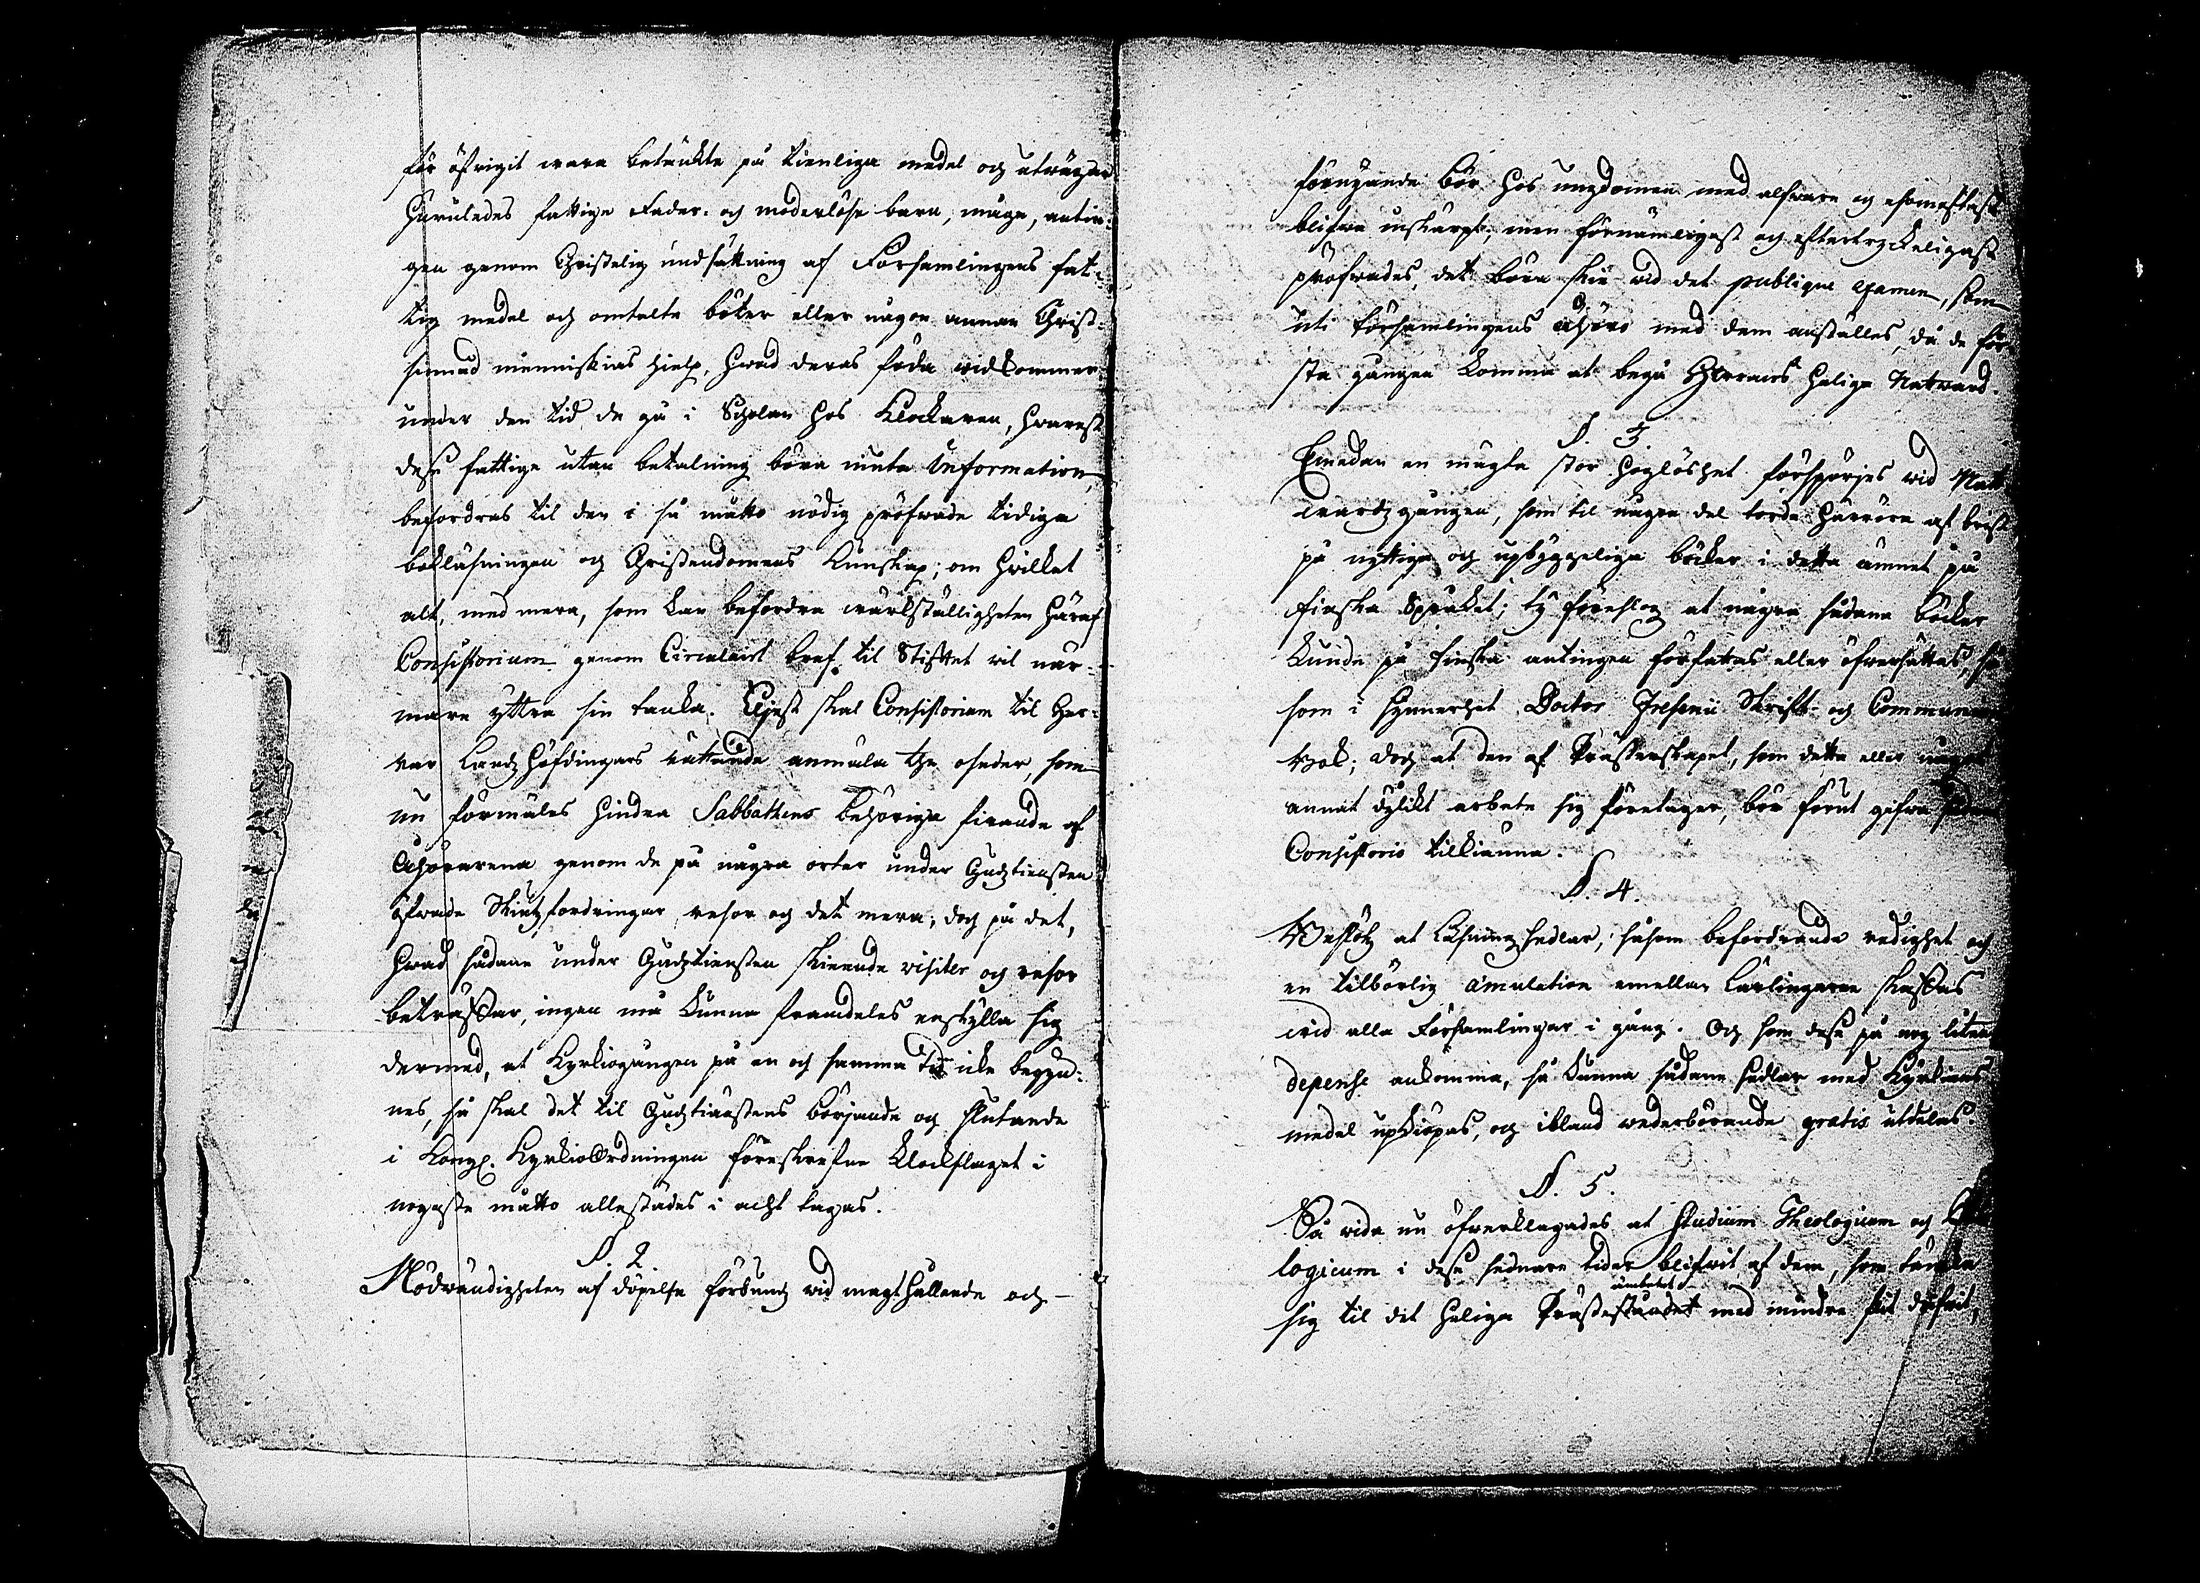 för öfrigit wara betänkte på tienliga medel och utwägar
huruledes fattige Fader- och moderlöse barn, måge, antin-
gen genom Christelig undsättning af Församlingens fat-
tig medel och omtalte böter eller någon annan Christ-
sinnad menniskias hielp, hwad deras föda widkommer
under den tid de gå i Scholan hos Klockaren, hwarest
desse fattige utan betalning böra niuta Information,
befordras til den i så måtto nödig pröfwade tidiga
bokläsningen och Christendomens kunskap; om hwilket
alt, med mera, som kan befordra wärkställigheten häraf
Consistorium genom Circulairt bref til Stiftet wil när-
mare yttra sin tanka. Eljest skal Consistorium til Her-
rar Landzhöfdingars rättande anmäla the oseder, som
nu förmäles hindra Sabbathens behöriga firande af
Åhörarena genom de på några orter under Gudztiensten
öfwade Skiutzfordringar, resor och det mera; doch på det,
hwad sådane under Gudztiensten skieende visiter och resor
beträffar, ingen må kunna framdeles enskylla sig
dermed, at Kyrkiogången på en och samma tid icke begyn-
nes, så skal det til Gudztienstens börjande och slutande
i Kongl. KyrkioOrdningen föreskrefne Klockslaget i
nogaste måtto allestädes i acht tagas.
§. 2.
Nödwändigheten af döpelse förbundz wid magt hållande och
förnyande bör hos ungdomen med alfware och esomoftast
blifwa inskärpt; men förnämligast och eftertryckeligast
pröfwades, det böra skie wid det publique examen, som
uti församlingens åhöro med dem anställes, då de för-
sta gången komma at begå HErrans Heliga Natward.
§. 3.
Emedan en mägta stor hoglöshet förspörjes wid Natt-
wardzgången, som til någon del torde härröra af brist
på nyttige och upbyggeliga böcker i detta ämnet på
Finska Språket; ty föreslogz at några sådana böcker
kunde på Finska antingen författas eller öfwersättas, så
som i synnerhet Doctor Fresenii Skrift- och Communion
Bok; doch at den af Prästerskapet, som detta eller något
annat dylikt arbete sig företager, bör förut gifwa
Consistorio tilkänna.
§. 4.
Beslötz at Läsningzsedlar, såsom befordrande redighet och
en tilbörlig æmulation emellan Lärlingarne skaffas
wid alla Församlingar i gång. Och som desse på nog liten
depense ankomma, så kunna sådane sedlar med Kyrkians
medel upkiöpas, och ibland wederbörande gratis utdelas.
§. 5.
Så wida nu öfwerklagades at Studium Theologicum och
logicum i desse sednare tider blifwit af dem, som tänka
sig til det heliga Prästeståndet ämbetet med mindre flit drifwit,